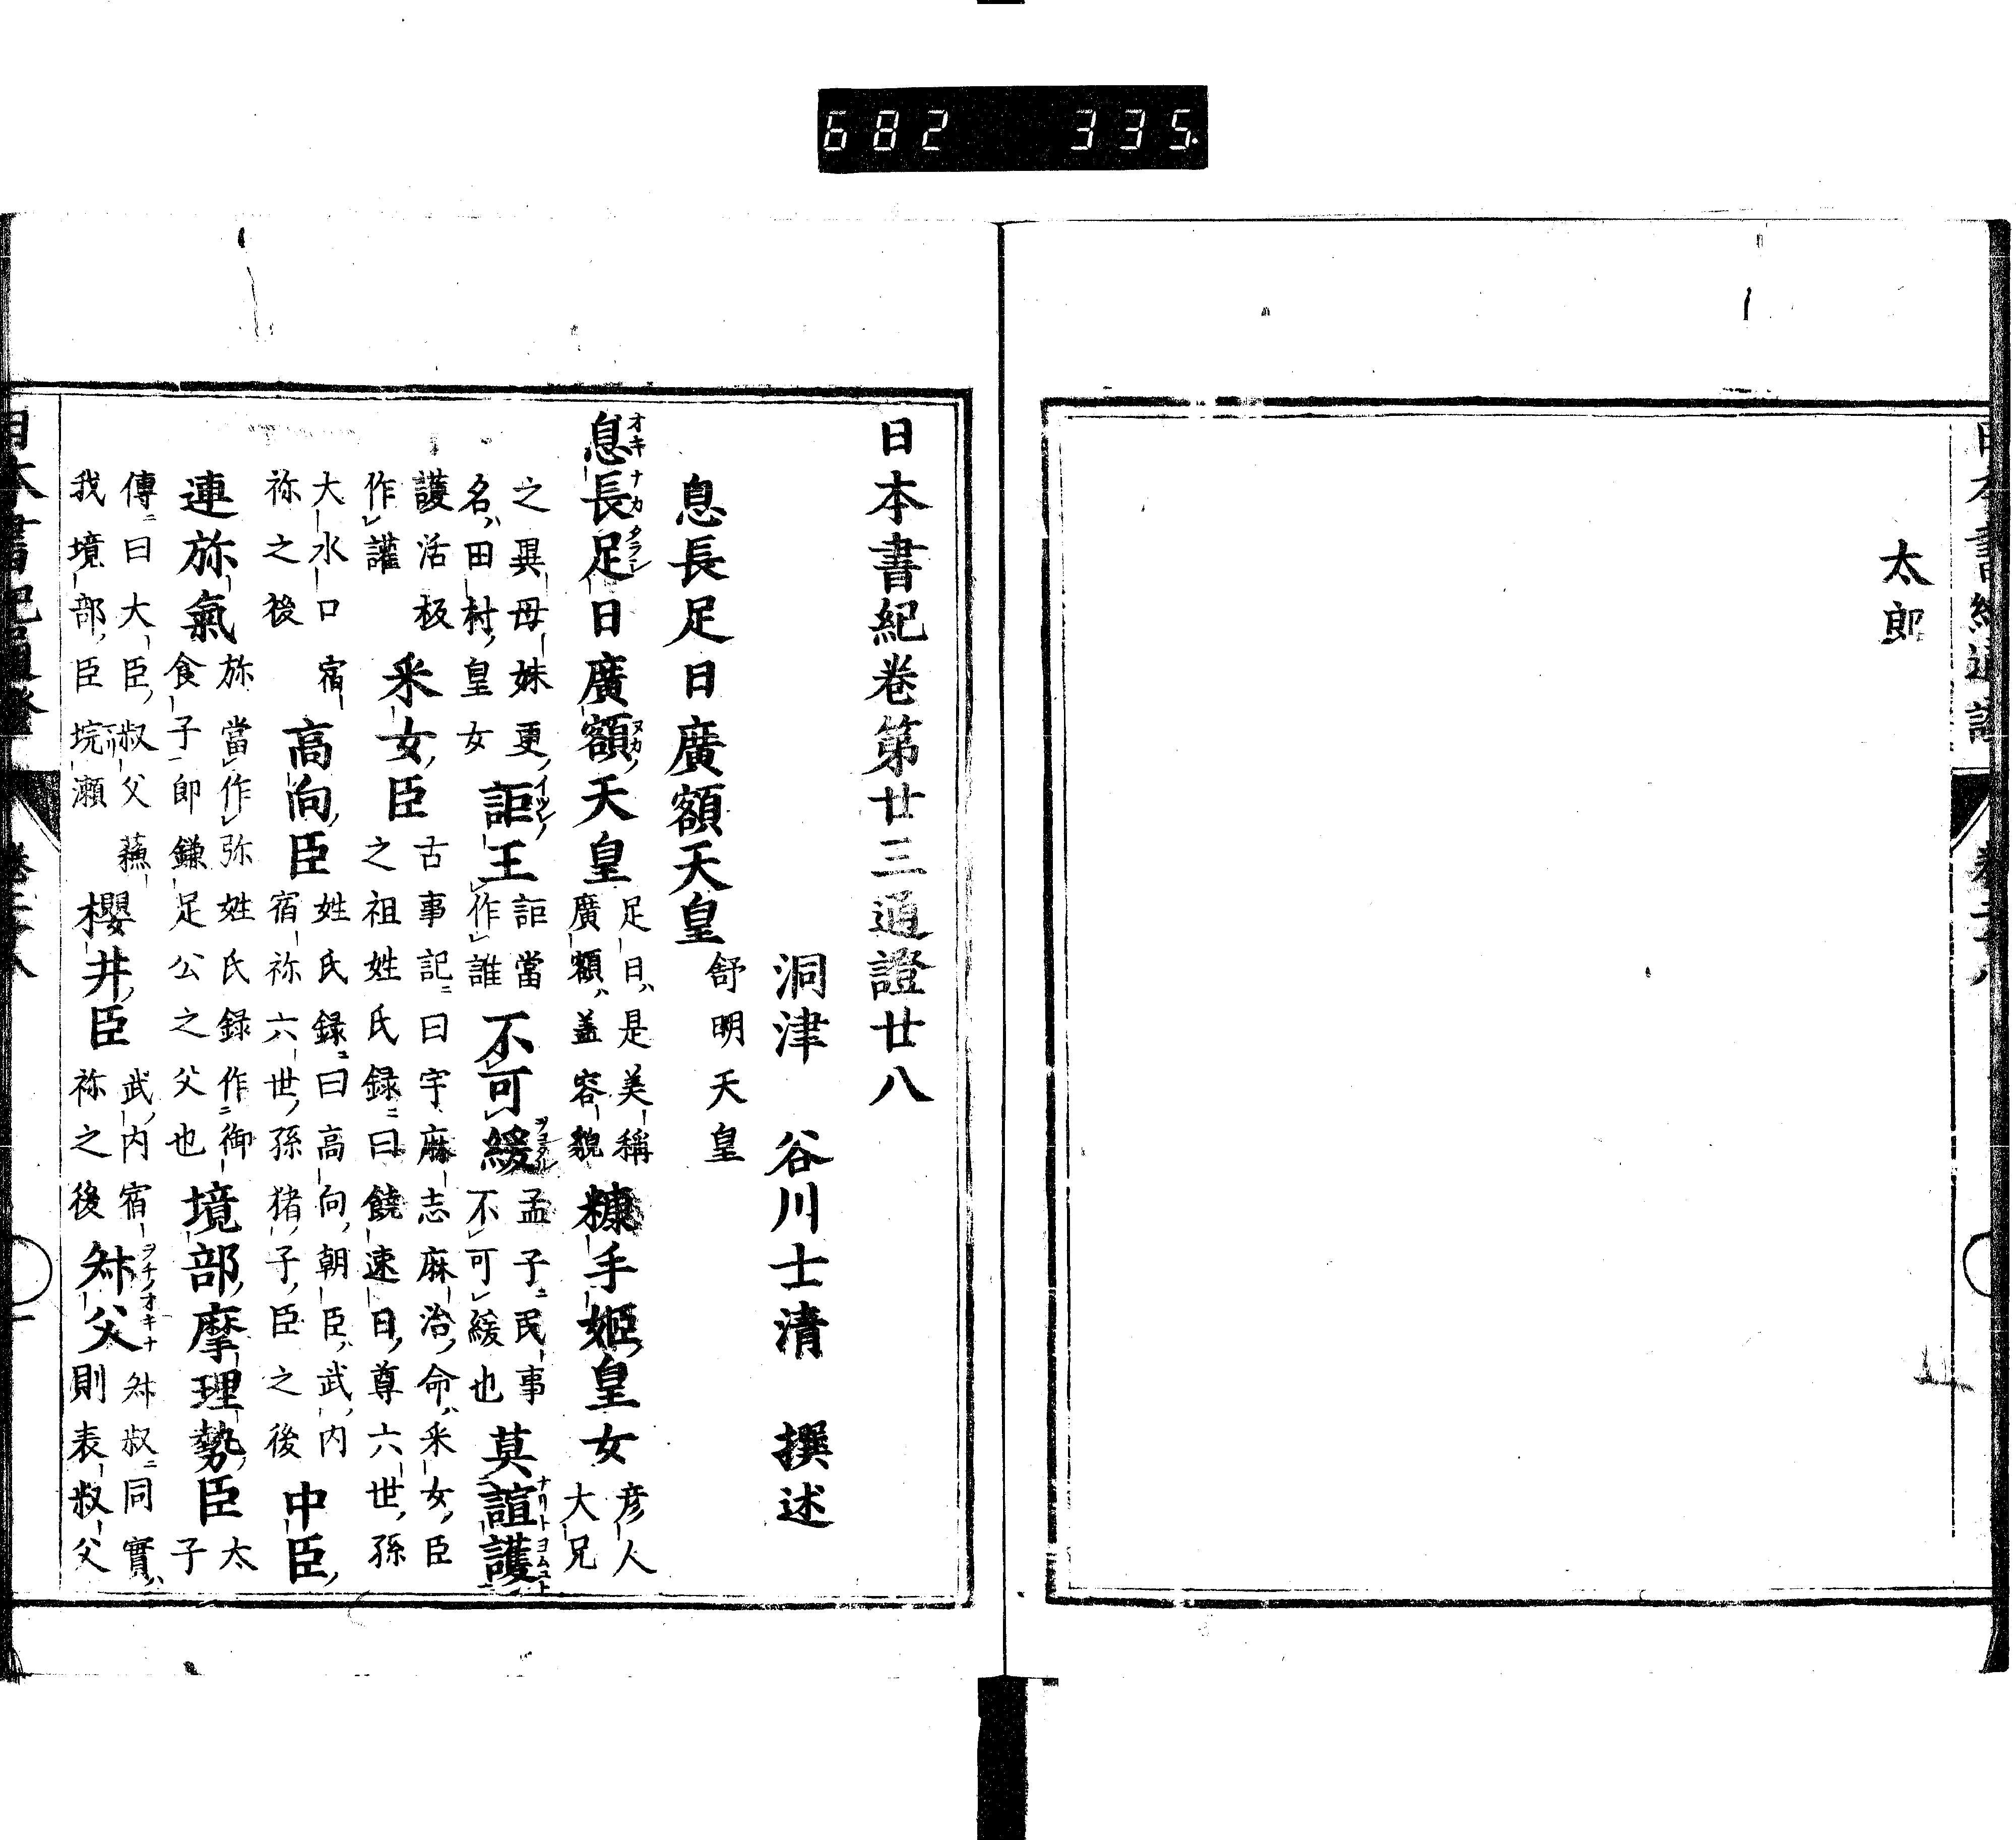 682 335
太郎
日本書紀卷第廿三通證廿八
洞津 谷川士清 撰述
息長足日廣額天皇 舒明天皇
息長足日廣額天皇 足日ハ是美稱廣額ハ蓋容貌 糠手姬皇女 彦人大兄
之異母妹更名ハ田村皇女 詎王 詎當作誰 不可緩 孟子ニ民事不可緩也 莫諠護
護活板作讙 采女臣 古事記ニ曰宇麻志麻治命ハ采女臣之祖姓氏録ニ曰饒速日尊六世孫
大水口宿祢之後 高向臣 姓氏録ニ曰高向朝臣ハ武内宿祢六世孫猪子臣之後 中臣
連旀氣 旀當作弥姓氏録作御食子即鎌足公之父也 境部摩理勢臣 太子
傳ニ曰大臣叔父蘓我境部臣垸瀬 櫻井臣 武内宿祢之後 叅父 叅叔ニ同實ハ則表叔父